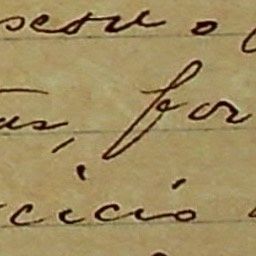 scou o
tas, for
cicio